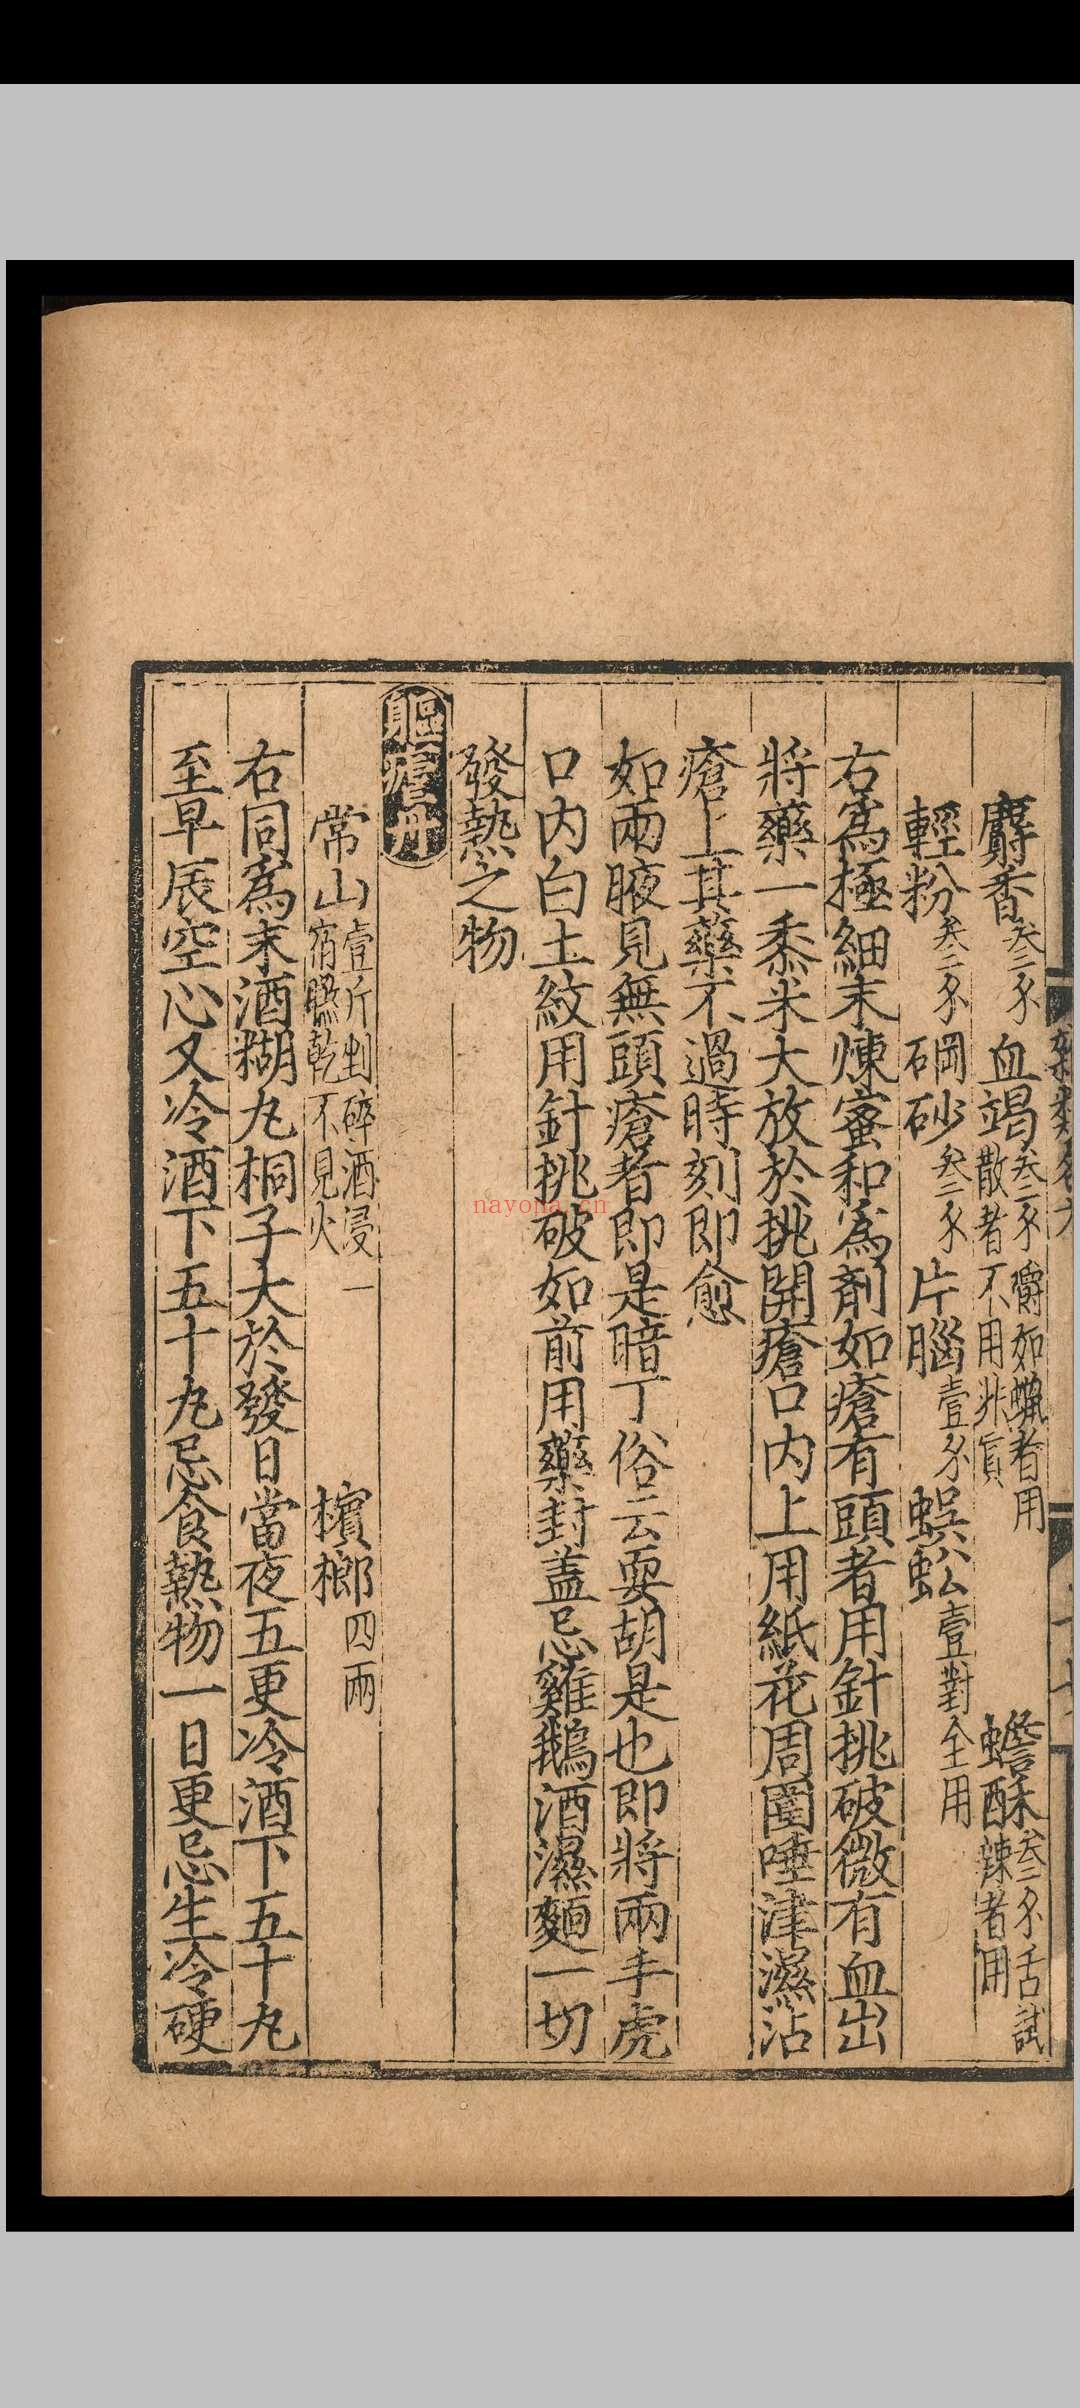 麝香叁分 血竭叁分嚼如蠟者用散者不用非真 蟾酥叁分舌試辣者用
輕粉叁分 硇砂叁分 片腦壹分 蜈蚣壹對全用
右爲極細末煉蜜和爲劑如瘡有頭者用針挑破微有血出
將藥一黍米大放於挑開瘡口内上用紙花周圍唾津濕沾
瘡上其藥不過時刻即愈
如兩腋見無頭瘡者即是暗丁俗云耍胡是也即將兩手虎
口内白土紋用針挑破如前用藥封蓋忌雞鵝酒濕麵一切
發熱之物
軀瘧丹
常山壹斤剉碎酒浸一宿曬乾不見火 檳榔四兩
右同爲末酒糊丸桐子大於發日當夜五更冷酒下五十丸
至早辰空心又冷酒下五十丸忌食熱物一日更忌生冷硬
nayona.cn